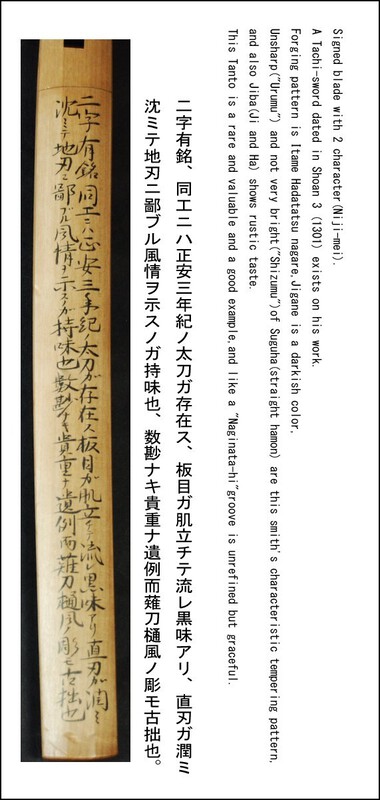 Signed blade with 2 character(Niji-mei).
A Tachi-sword dated in Shoan 3 (1301) exists on his work.
Forging pattern is Itame Hadatatsu nagare.Jigane is a darkish color.
Unsharp("Urumu") and not very bright("Shizumu")of Suguha(straight hamon) are this smith's characteristic tempering pattern,
and also Jiba(Ji and Ha) shows rustic taste.
This Tanto is a rare and valuable and a good example,and like a "Naginata-hi"groove is unrefined but graceful.
二字有銘、同工ニハ正安三年紀ノ太刀ガ存在ス、板目ガ肌立チテ流レ黒味アリ、直刃ガ潤ミ
沈ミテ地刃ニ鄙ブル風情ヲ示スノガ持味也、数尠ナキ貴重ナ遺例而薙刀樋風ノ彫モ古拙也。
二字有銘同工ニハ正安三年紀太刀ガ存在ス板目ガ肌立チテ流レ黒味アリ直刃ガ潤ミ
沈ミテ地刃ニ鄙ブル風情ヲ示スノガ持味也数尠ナキ貴重ナ遺例而薙刀樋風ノ彫モ古拙也